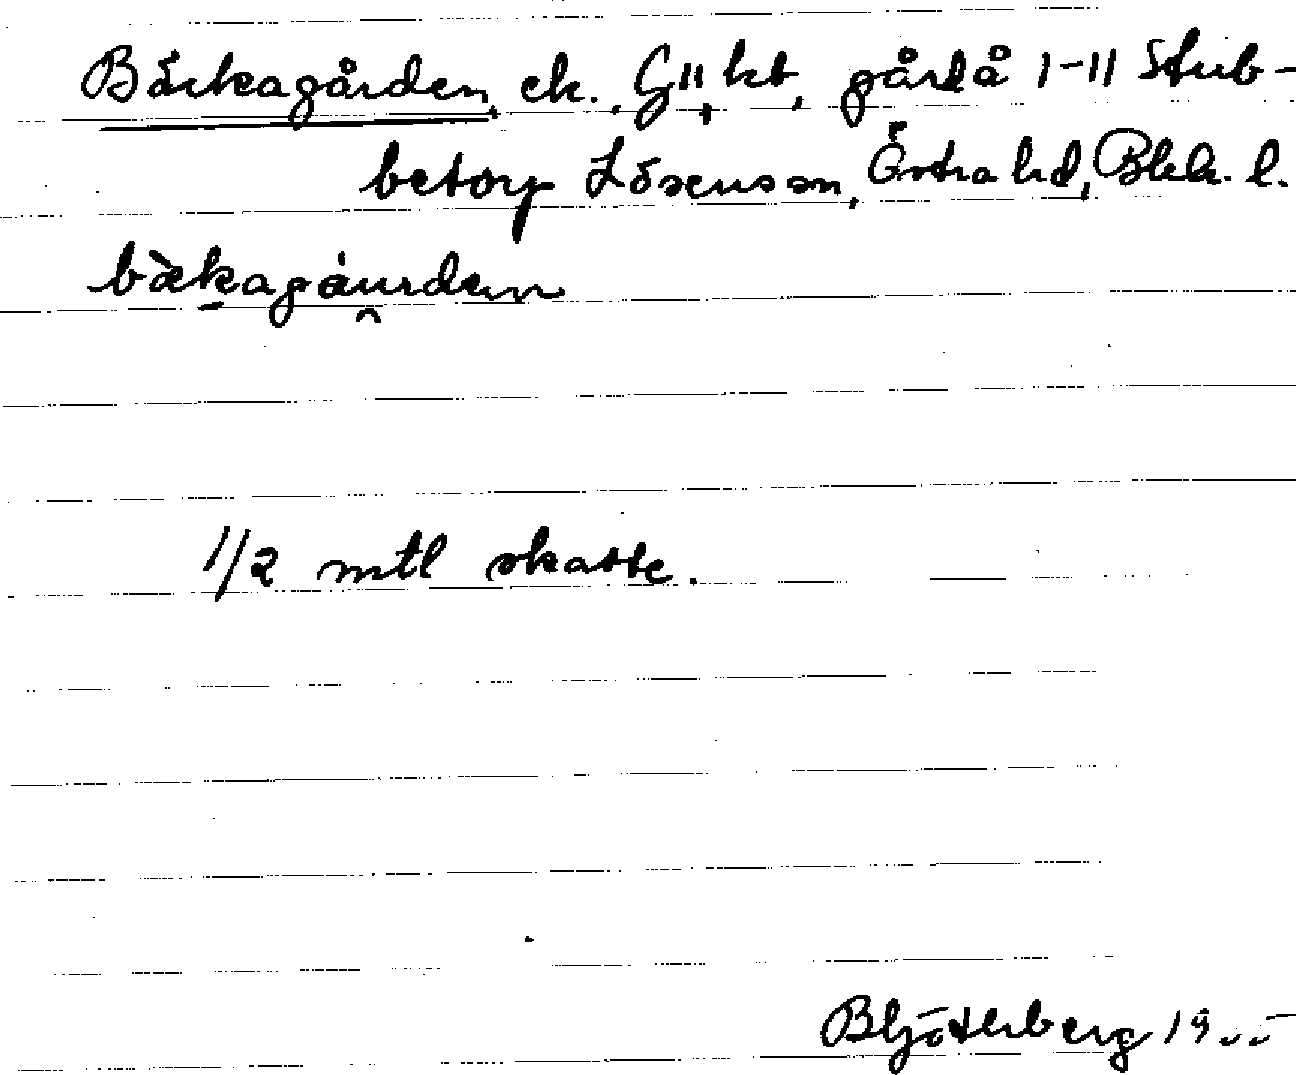 Bäckagården, ek. G11 kt, gård å 1-11 Stub-
betorp Lösens sn, Östra hd, Blek. l.
bäkagåurden
1/2 mtl skatte.